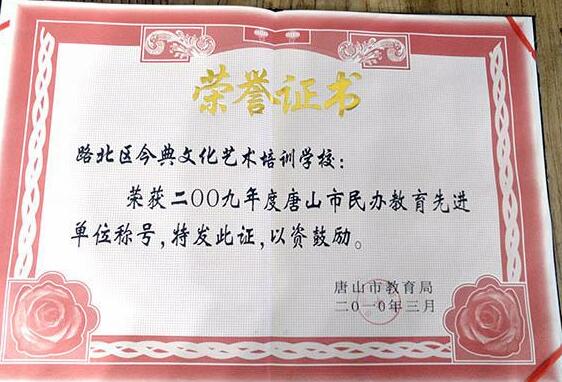 荣誉证书
路北区今典文化艺术培训学校：
荣获二〇〇九年度唐山市民办教育先进
单位称号，特发此证，以资鼓励。
唐山市教育局
二〇一〇年三月